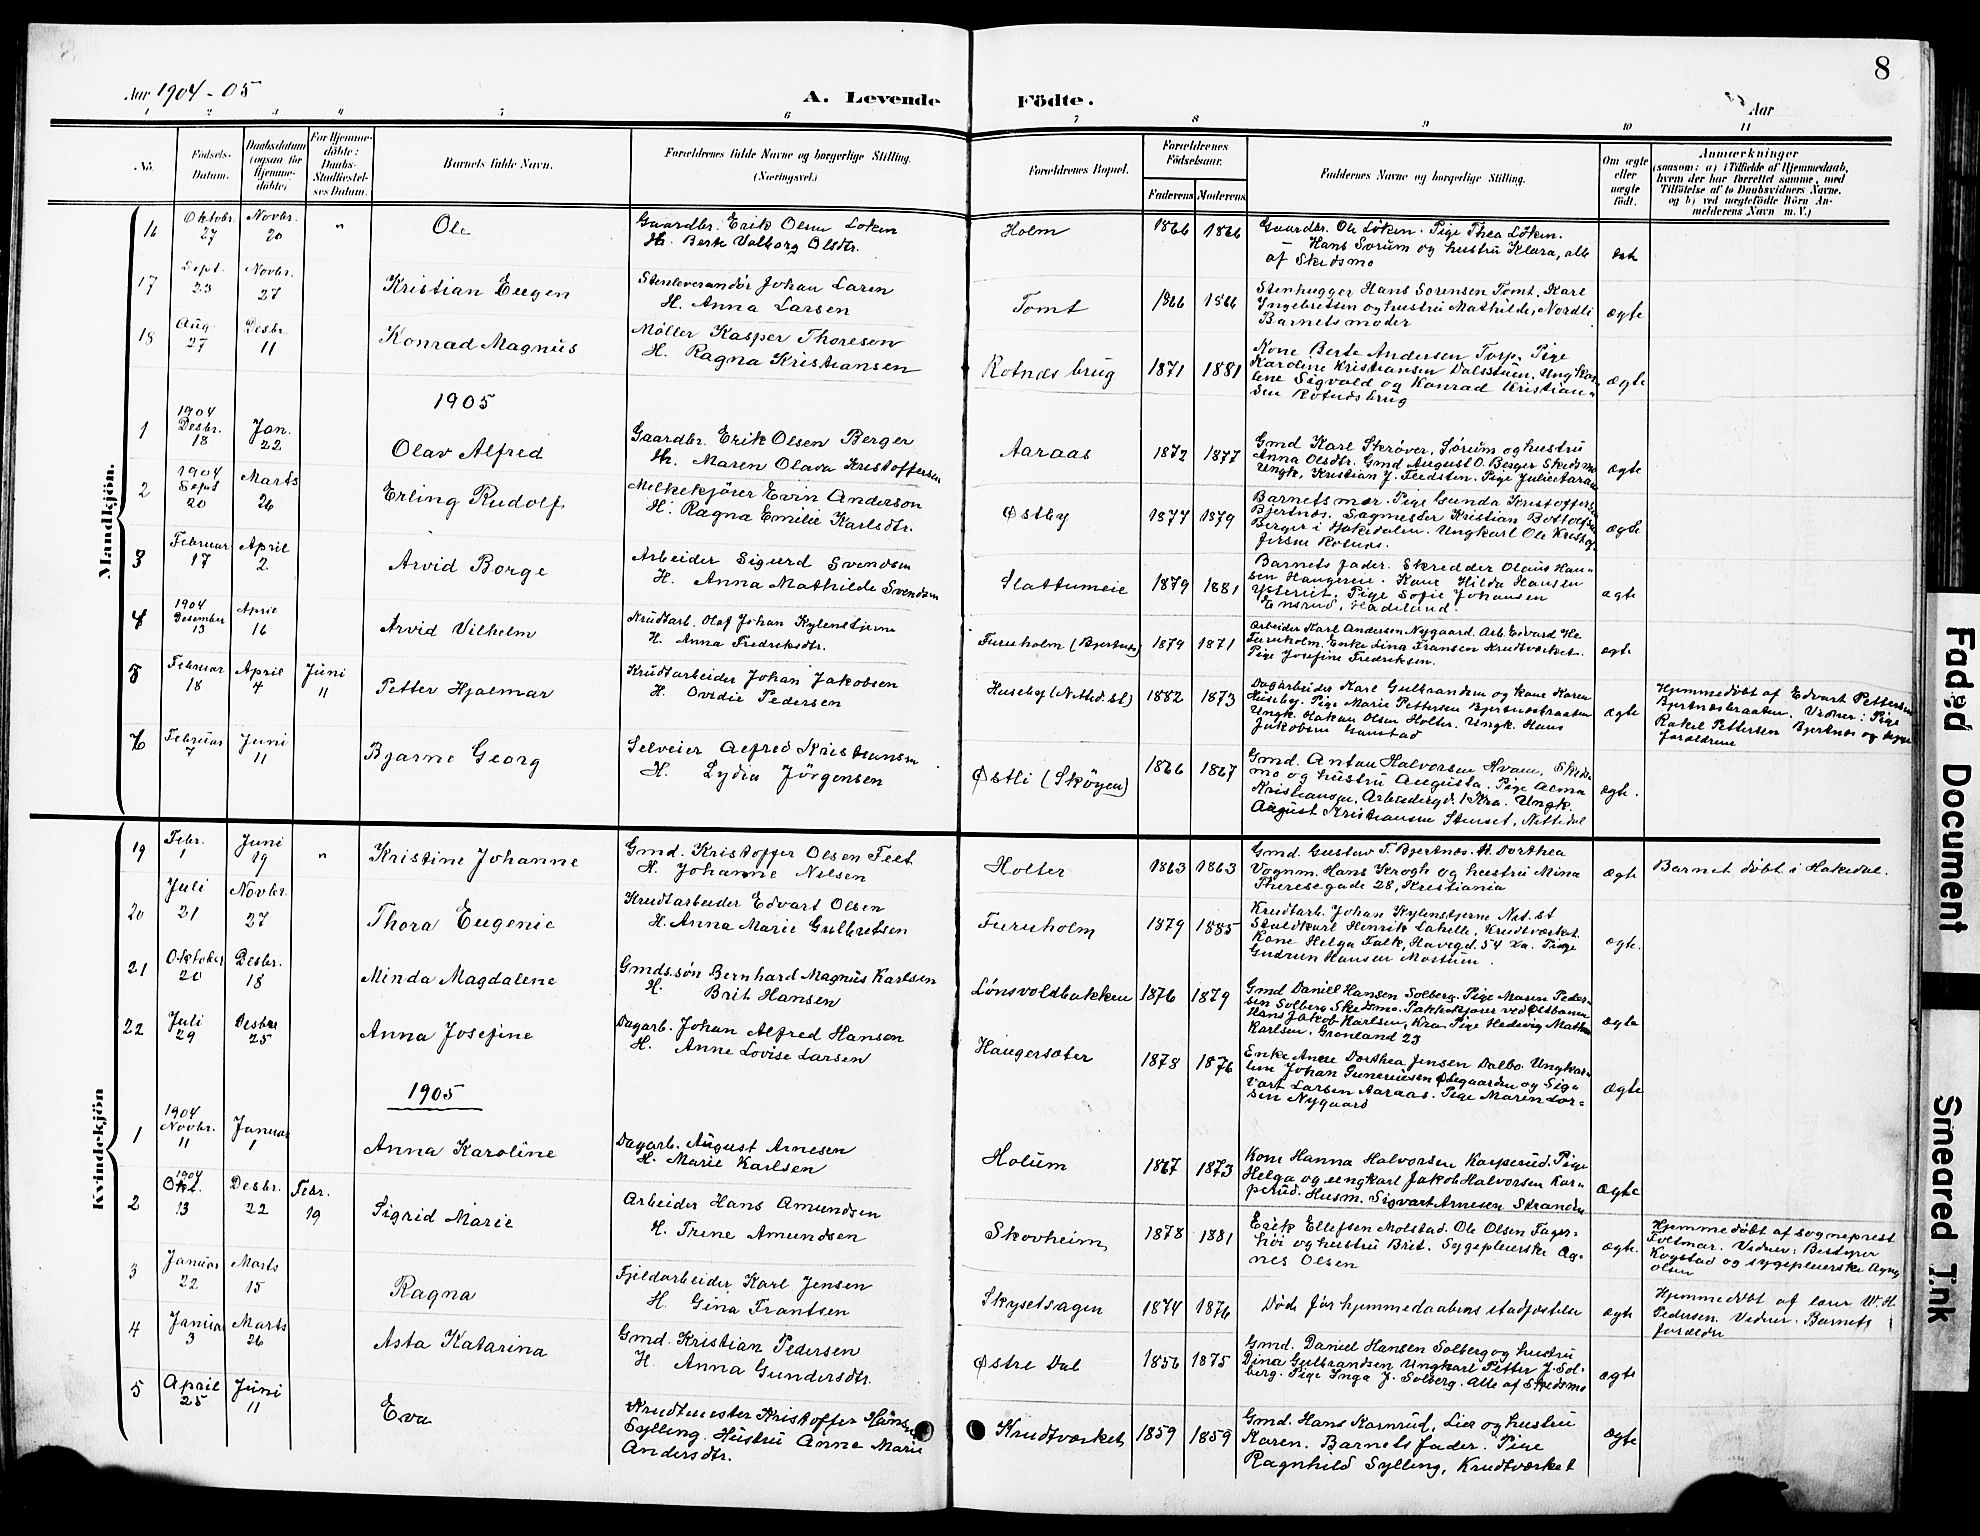 8
Aar 1904-05
A. Levende Födte.
Aar
1 2 3 4 5 6 7 8 9 10 11
No.
Fødsels-Datum.
Daabsdatum (ogsaa for Hjemmedøbte).
For Hjemmedöbte: Daabs-Stadfæstelses Datum.
Barnets fulde Navn.
Forældrenes fulde Navne og borgerlige Stilling. (Næringsvei.)
Forældrenes Bopæl.
Forældrenes Födselsaar.
Faderens
Moderens
Faddernes Navne og borgerlige Stilling.
Om ægte eller uægte födt.
Anmærkninger
(saasom: a) i Tilfælde af Hjemmedaab, hvem der har forrettet samme, med Tilföielse af to Daabsvidners Navne, og b) ved uægtefödte Börn Anmelderens Navn m. V.)
Mandkjön.
16 Oktobr. 27 Novbr. 20 " Ole
Gaardbr. Erik Olsen Løken
H. Berte Valborg Olsdtr.
Holm 1866 1866
Gaardbr. Ole Løken. Pige Thea Løken.
— Hans Sørum og hustru Klara, alle
af Skedsmo
17 Sept. 23 Novbr. 27 Kristian Eugen
Stenleverandør Johan Laren
H. Anna Larsen
Tomt 1866 1866
Stenhugger Hans Sorensen Tomt. Karl
Ingebretsen og hustru Mathilde, Nordli
Barnets moder
ægte
18 Aug. 27 Desbr. 11 Konrad Magnus
Møller Kasper Thoresen
H. Ragna Kristiansen
Rotnæs brug 1871 1881
Kone Berte Andersen Torp. Pige
Karoline Kristiansen Dalsstuen. Ungkar-
lene Sigvald og Konrad Kristian-
sen Rotnæs brug
ægte
1905
1 1904 Desbr. 18 Jan. 22 Olav Alfred
Gaardbr. Erik Olsen Berger
H. Maren Olava Kristoffersen
Aaraas 1872 1877
Gmd Karl Skrøver, Sørum og hustru
Anna Olsdtr. Gmd August O. Berger Skedsmo
Ungk. Kristian J. Fledsten. Pige Julie Aaraas
ægte
2 1904 Sept 20 Marts 26 Erling Rudolf
Melkekjører Evin Anderson
H. Ragna Emilie Karlsdtr.
Østby 1877 1879
Barnets mor. Pige Gunda Kristoffersen
Bjertnæs. Sagmester Kristian Bottolfsen
Berger i Hakedalen. Ungkarl Ole Kristof-
fersen Rotnæs.
ægte
3 Februar 17 April 2 Arvid Borge
Arbeider Sigurd Svendsen
H. Anna Mathilde Svendsen
Slattumeie 1879 1881
Barnets fader. Skredder Olaus Han-
sen Haugereie. Kone Hilda Hansen
Ystereit. Pige Sofie Johansen
Ensrud, Hadeland.
ægte
4 1904 Desember 13 April 16 Arvid Vilhelm
Krudtarb. Olaf Johan Kylenstjerne
H. Anna Fredriksdtr.
Furuholm (Bjertnæs) 1879 1871
Arbeider Karl Andersen Nygaard. Arb. Edvard He
Furuholm. Enke Lina Fransen Krudtværket.
Pige Josefine Fredriksen.
ægte
5 Februar 18 April 4 Juni 11 Petter Hjalmar
Krudtarbeider Johan Jakobsen
H. Ovidie Pedersen
Huseby (Nitted. st) 1882 1873
Dagarbeider Karl Gulbrandsen og kone Karen
Huseby. Pige Marie Pettersen Bjertnæsbraaten
Ungk. Hakon Olsen Holter. Ungk. Hans
Jakobsen Gaustad
ægte
Hjemmedøbt af Edvart Pettersen
Bjertnæsbraaten. Vidner: Pige
Rakel Pettersen Bjertnæs og begge
forældrene
6 Februar 7 Juni 11 Bjarne Georg
Selveier Alfred Kristiansen
H. Lydia Jörgensen
Østli (Skøyen) 1866 1867
Gmd. Anton Halvorsen Hvam, Skeds-
mo og hustru Augusta. Pige Alma
Kristiansen, Arbeidergd. 1 Kra. Ungk.
August Kristiansen Stenset, Nittedal
ægte.
Kvindekjön
19 Febr. 1 Juni 19 " Kristine Johanne
Gmd. Kristoffer Olsen Feet
H. Johanne Nilsen
Holter 1863 1863
Gmd. Gustav T. Bjertnæs. H. Dorthea
Vognm. Hans Krogh og hustru Mina
Theresegade 28, Kristiania
ægte
Barnet døbt i Hakedal.
20 Juli 21 Novbr. 27 Thora Eugenie
Krudtarbeider Edvart Olsen
H. Anna Marie Gulbretsen
Furuholm 1879 1885
Krudtarb. Johan Kylenstjerne Nit. st
Staldkarl Henrik Lahelle, Krudtværket.
Kone Helga Falk, Havegd. 54 Kra. Pige
Gudrun Hansen Mostuen.
ægte.
21 Oktober 20 Desbr. 18 Minda Magdalene
Gmds.søn Bernhard Magnus Karlsen
H. Brit Hansen
Lønsvoldbakken 1876 1879
Gmd Daniel Hansen Solberg. Pige Maren Peder-
sen Solberg Skedsmo. Pakkekjører ved Østbanen
Hans Jakob Karlsen, Kra. Pige Hedevig Mathea
Karlsen. Grønland 23
ægte
22 Juli 29 Desbr 25 Anna Josefine
Dagarb. Johan Alfred Hansen
H. Anne Lovise Larsen
Haugersæter 1878 1876
Enke Anne Dorthea Jensen Dalbo. Ungkar-
lene Johan Guneriusen Ødegaarden og Sig-
vart Larsen Aaraas. Pige Maren Lar-
sen Nygaard
ægte
1905
1 1904 Novbr. 11 Januar 1 Anna Karoline
Dagarb. August Arnesen
H. Marie Karlsen
Holum 1867 1873
Kone Hanna Halvorsen Kasperud. Pige
Helga og ungkarl Jakob Halvorsen Kas-
perud. Husm. Sigvart Arnesen Stranden
ægte
2 1904 Okt. 13 Desbr. 22 Febr. 19 Sigrid Marie
Arbeider Hans Amundsen
H. Trine Amundsen
Skovheim, 1878 1881
Erik Ellefsen Molstad. Ole Olsen Fager-
høi og hustru Brit. Sygepleierske Ag-
nes Olsen
ægte.
Hjemmedøbt af sogneprest
Foltmar. Vidner: Bestyrer
Kogstad og sygepleierske Agnes
Olsen
3 Januar 22 Marts 15 Ragna
Fjeldarbeider Karl Jensen
H. Gina Frantsen
Skysetsagen 1874 1876
Død før hjemmedaabens stadfæstelse
ægte
Hjemmedøbt af lærer W. H.
Pedersen. Vidner. Barnets
forældre
4 Januar 3 Marts 26 Asta Katarina
Gmd. Kristian Pedersen
H. Anna Gundersdtr.
Østre Dal 1856 1875
Gmd. Daniel Hansen Solberg og hustru
Dina Gulbrandsen Ungkarl Petter J. Sol-
berg. Pige Inga J. Solberg. Alle af Skedsmo
ægte
5 April 25 Juni 11 Eva
Krudtmester Kristoffer Hansen
Sylling. Hustru Anne Marie
Andersdtr.
Krudtværket 1859 1859
Gmd. Hans Kornrud, Lier og hustru
Karen. Barnets fader. Pige
Ragnhild Sylling, Krudtværket
ægte
Faded Document
Smeared Ink